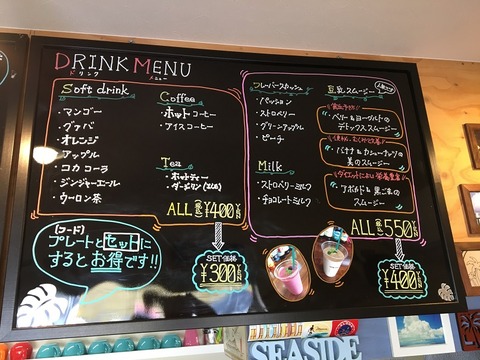 DRINK MENU
ドリンク メニュー
Soft drink
・マンゴー
・グァバ
・オレンジ
・アップル
・コカコーラ
・ジンジャーエール
・ウーロン茶
Coffee
・ホットコーヒー
・アイスコーヒー
Tea
・ホットティー
・ダージリン
ALL ¥400
SET価格
¥300
【フード】
プレートとセットに
するとお得です!!
・パッション
・ストロベリー
・グリーンアップル
・ピーチ
Milk
・ストロベリーミルク
・チョコレートミルク
豆乳スムージー
ベリー&ヨーグルトの
デトックススムージー
バナナ&カシューナッツの
美のスムージー
アボカド&黒ごまの
スムージー
ALL 550
SET価格
¥400
SEASIDE